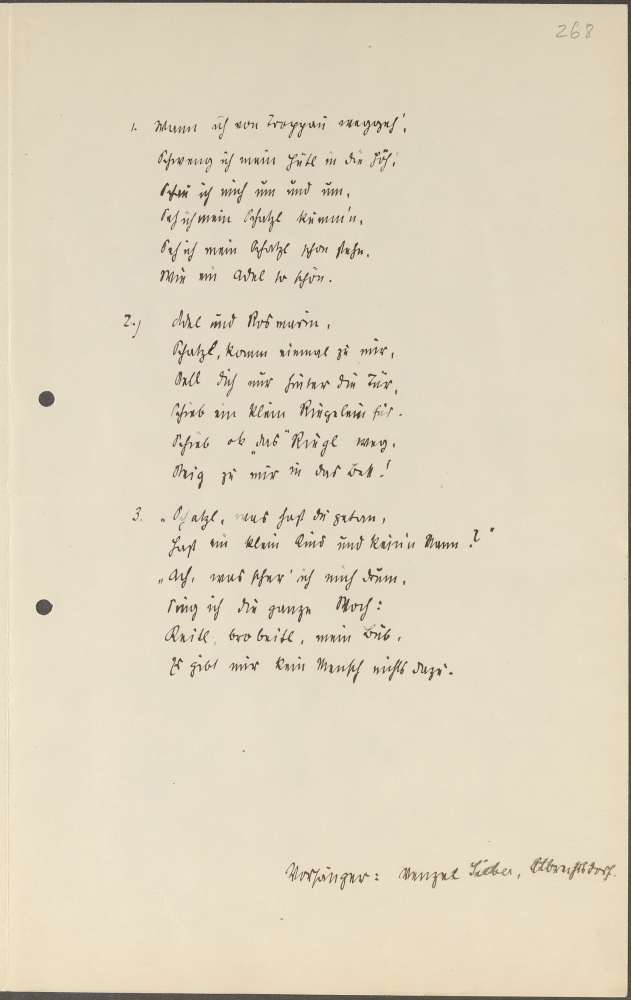 268
1. Wann ich von Troppau weggeh',
Schweng ich mein Hütl in die Höh,
Schau ich mich um und um,
Seh ich mein Schatzl kumm'n,
Seh ich mein Schatzl schon stehn.
Wie ein Adel so schön.
2.) Adel und Rosmarin,
Schatzl, komm einmal zu mir,
Stell dich nur hinter die Tür,
Schieb ein klein Riegelein für.
Schieb ok "das" Riegl weg,
Steig zu mir in das Bett!
3. "Schatzl, was hast du getan,
Hast ein klein Kind und keinen Mann?"
"Ach, was scher' ich mich drum,
Sing ich die ganze Woch:
mein Bub,
Es gibt mir kein Mensch nichts dazu.
Vorsänger: Wenzel Albrechtsdorf.